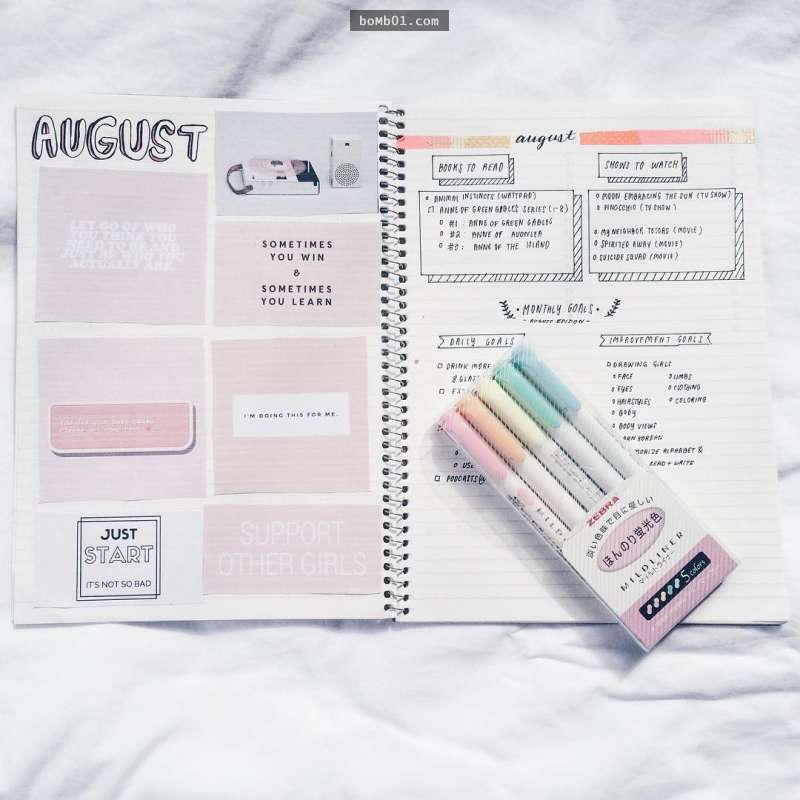 bomb01.com
AUGUST
LET GO OF WHO
YOU THINK YOU
NEED TO BE AND
JUST BE WHO YOU
ACTUALLY ARE.
SOMETIMES
YOU WIN
&
SOMETIMES
YOU LEARN
I'M DOING THIS FOR ME.
JUST
START
IT'S NOT SO BAD
SUPPORT
OTHER GIRLS
august
BOOKS TO READ
ANIMAL INSTINCTS (WATTPAD)
ANNE OF GREEN GABLES SERIES (1-8)
#1 : ANNE OF GREEN GABLES
#2 : ANNE OF AVONLEA
#3 : ANNE OF THE ISLAND
SHOWS TO WATCH
MOON EMBRACING THE SUN (TV SHOW)
PINOCCHIO (TV SHOW)
MY NEIGHBOR TOTORO (MOVIE)
SPIRITED AWAY (MOVIE)
SUICIDE SQUAD (MOVIE)
MONTHLY GOALS
- AUGUST EDITION -
DAILY GOALS
DRINK MORE
8 GLAS
PODCASTS
IMPROVEMENT GOALS
DRAWING GIRLS
FACE
EYES
HAIRSTYLES
BODY
BODY VIEWS
LIMBS
CLOTHING
COLORING
KOREAN
ALPHABET &
READ + WRITE
ZEBRA
淡い色味で目に優しい
ほんのり蛍光色
MILDLINER
マイルドライナー
5 colors